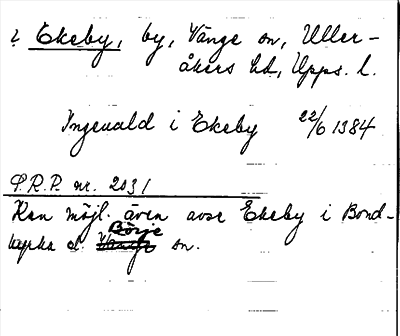 i Ekeby, by, Vänge sn, Uller-
åkers hd, Upps. l.
Ingevald i Ekeby 22/6 1384
S.R.P. nr. 2031
Kan möjl. även avse Ekeby i Bond-
kyrka el. Börje sn.